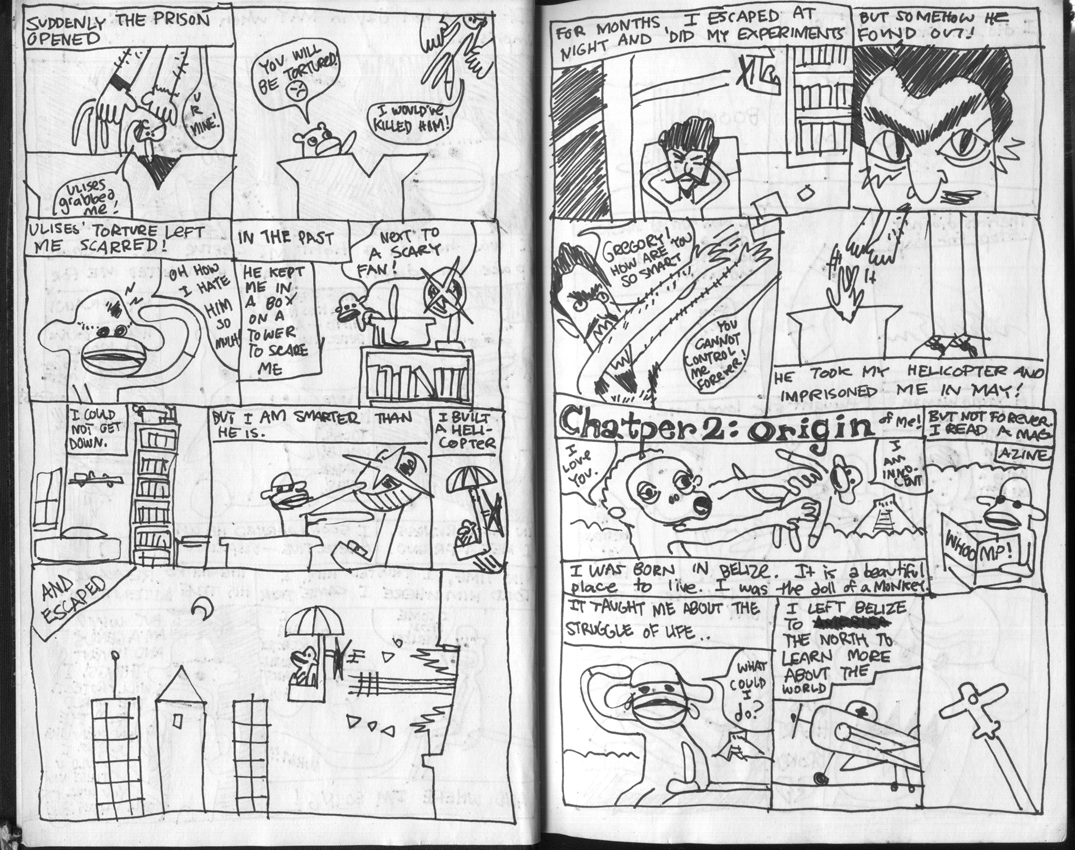 SUDDENLY THE PRISON
OPENED
U
R
MINE!
ULISES
grabbed
me!
YOU WILL
BE TORTURED!
I WOULD'VE
KILLED HIM!
ULISES' TORTURE LEFT
ME SCARRED!
OH HOW
I HATE
HIM
SO
MUCH!
IN THE PAST
HE KEPT
ME IN
A BOX
ON A
TOWER
TO SCARE
ME
NEXT TO
A SCARY
FAN!
I COULD
NOT GET
DOWN.
BUT I AM SMARTER THAN
HE IS.
I BUILT
A HELI-
COPTER
AND
ESCAPED
FOR MONTHS I ESCAPED AT
NIGHT AND DID MY EXPERIMENTS
BUT SOMEHOW HE
FOUND OUT!
GREGORY!
HOW ARE YOU
SO SMART
YOU
CANNOT
CONTROL
ME
FOREVER!
HE TOOK MY HELICOPTER AND
IMPRISONED ME IN MAY!
Chatper 2: Origin of me!
I
LOVE
YOU.
I
AM
INNO-
CENT
I WAS BORN IN BELIZE. It is a beautiful
place to live. I was the doll of a MONKEY.
BUT NOT FOREVER.
I READ A MAG-
AZINE
WHOO MP!
IT TAUGHT ME ABOUT THE
STRUGGLE OF LIFE..
WHAT
COULD
I
do?
I LEFT BELIZE
TO
THE NORTH TO
LEARN MORE
ABOUT THE
WORLD